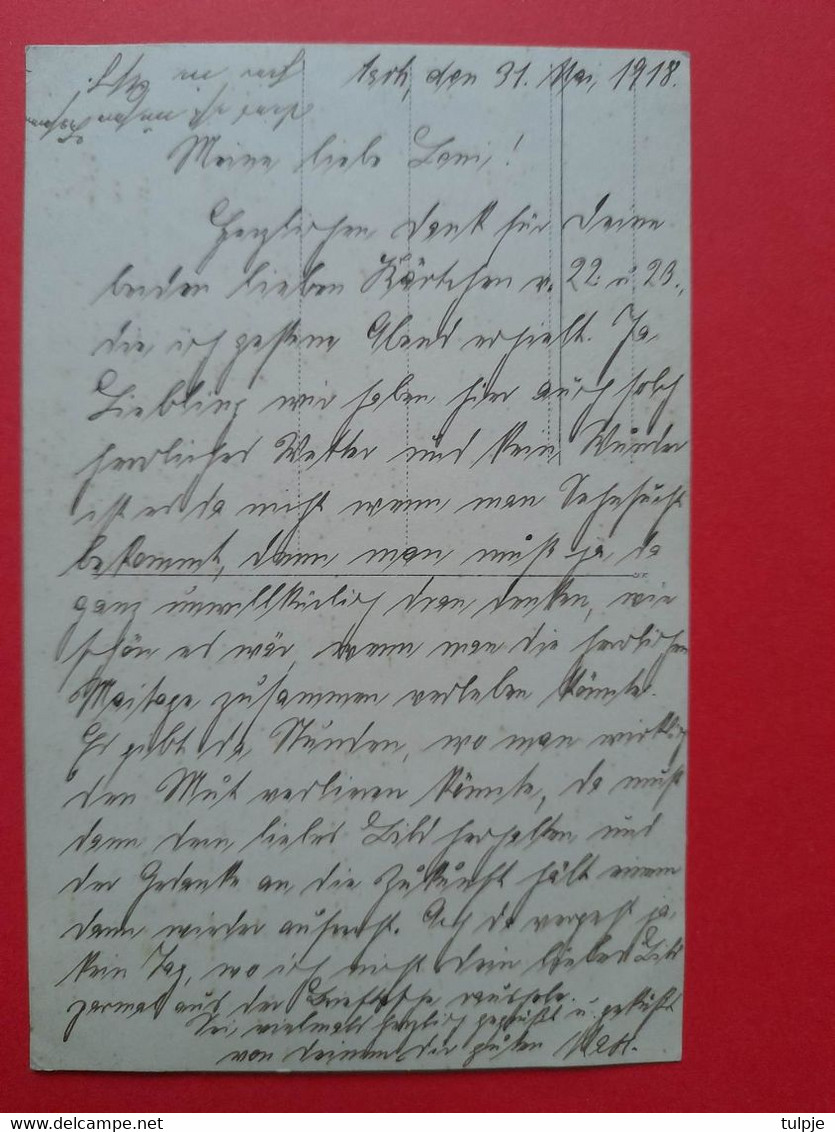 den 31. Mai 1918.
Meine liebe Loni!
Herzlichen Dank für Deine
beiden lieben Kärtchen v. 22. u. 23.,
die ich gestern Abend erhielt. Ja
Liebling wir haben hier auch solch
herrliches Wetter und kein Wunder
ist es da nicht wenn man Sehnsucht
bekommt, denn man muß ja da
ganz unwillkürlich dran denken, wie
schön es wär, wenn man die herrlichen
Maitage zusammen verleben könnte.
Es gibt da Stunden, wo man wirklich
den Mut verlieren könnte, da muß
dann dein liebes Bild herhalten und
der Gedanke an die Zukunft hält einem
dann wieder aufrecht. Ach da vergeht ja
kein Tag, wo ich nicht dein liebes Bild
aus der Brieftasche raushole.
Sei vielmals herzlich gegrüßt u. geküßt
von deinem dir guten
tulpje